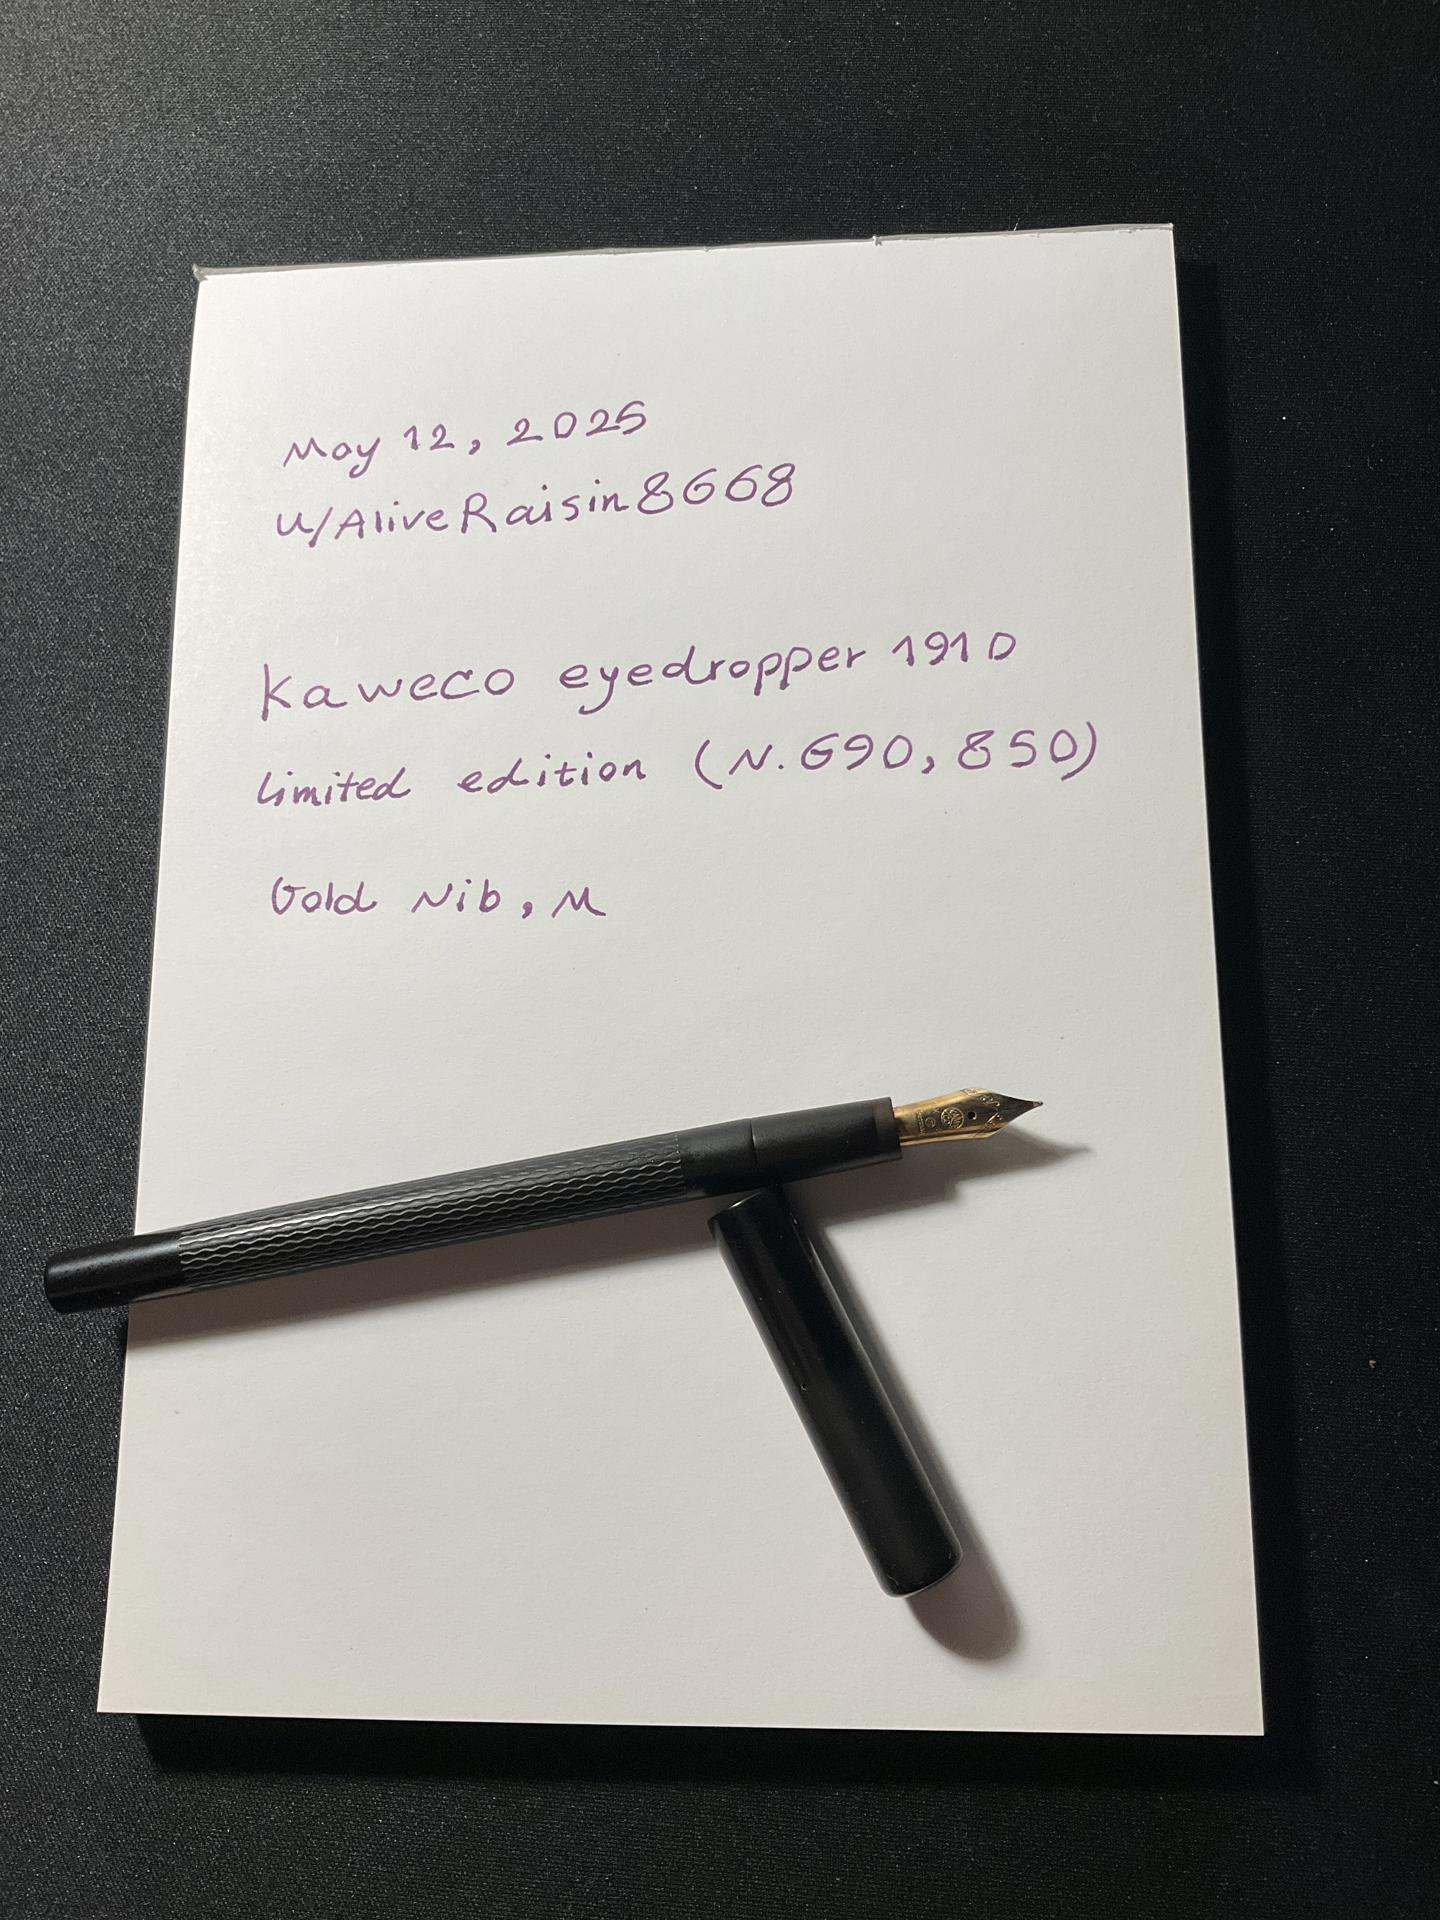 May 12, 2025
u/AliveRaisin8668
Kaweco eyedropper 1910
limited edition (N. 690, 850)
Gold Nib, M